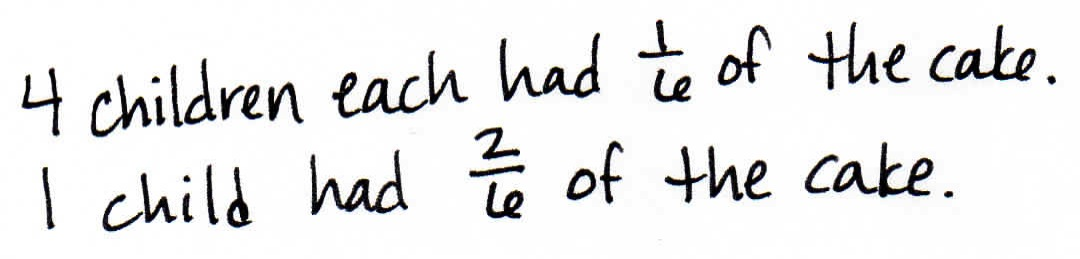 4 children each had 1/6 of the cake.
1 child had 2/6 of the cake.